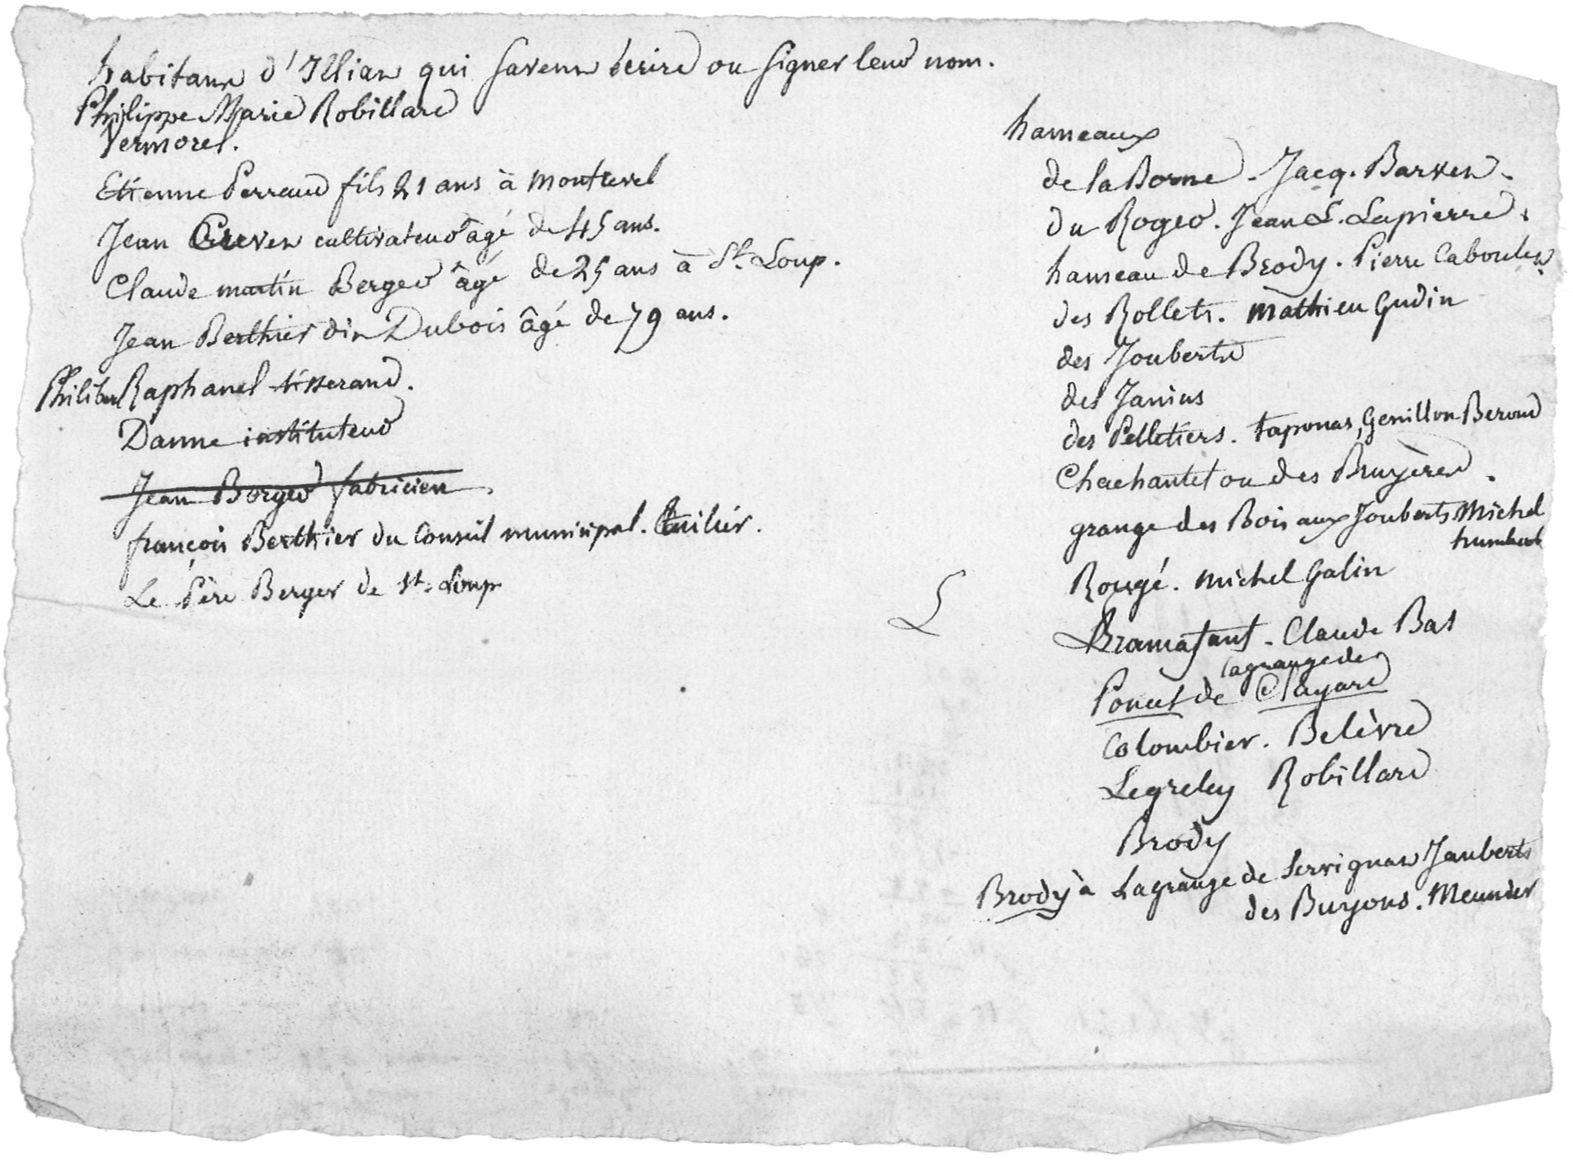 habitans d'Illiat qui savent écrire ou signer leur nom.
Philippe Marie Robillard
Vermorel.
Etienne Perraud fils 21 ans à Montrevel
Jean cultivateur âgé de 45 ans.
Claude martin Berger âgé de 25 ans à St. Loup.
Jean Berthier dit Dubois âgé de 79 ans.
Philibert Raphanel tisserand.
Danne instituteur
Jean Berger fabricien
françois Berthier du Conseil municipal. tuilier.
Le Père Berger de St. Loup
hameaux
de la Borne. Jacq.
du Roger. Jean L. Lapierre.
hameau de Brody. Pierre
des Rollets. Mathieu Gudin
des Jouberts
des Janins
des Pelletiers. taponas, Genillon Beroud
Chachantet ou des Bruyères.
grange des Bois aux Jouberts Michel
humbert
Rougé. Michel Galin
L
Bramafant. Claude Bas
lagrange de
Poncet de Clayard
Colombier. Belèvre
Legreley Robillard
Brody
Brody à Lagrange de Servignat Jauberts
des Buyons. Meunier